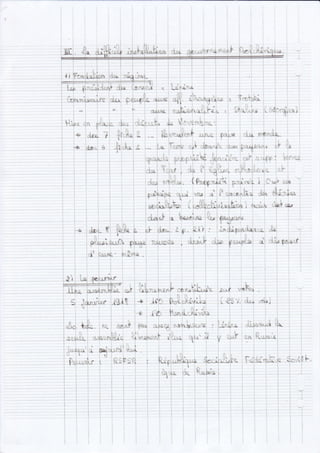 III. La difficile installation du gouvernement Bolchévique
1) Fondation du régime
Le président du Conseil : Lénine
Commissaire du peuple aux aff. étrangères : Trotski
" " " aux nationalités : Staline (Géorgien)
Mise en place des décrets de Novembre :
→ doc 7 fiche 2 → pour une paix du monde
→ doc 6 fiche 2 → La Terre est donnée aux paysans et la
grande propriété foncière est : terres
du Tsar, de l'Eglise orthodoxe et
des nobles. (Propriété privée) C'est une
qui va à l' des
socialistes (collectivisation) mais c'est ce
dont a besoin les paysans
→ doc 8 fiche 2 et doc 2 p. : indépendance de
plusieurs pays russes, droit des peuples à disposer
d'eux-même.
2) Le pouvoir
Une assemblée est librement constituée par vote.
5 Janvier 1918 → Bolchéviks (25% des voix)
→ Menchéviks
ne sont pas assez nombreux : Lénine dissout la
seule assemblée librement élue qu'il y eut en Russie
jusqu'à aujourd'hui.
Pouvoir : RSFSR : République Socialiste Fédérative Soviét-
ique de Russie.